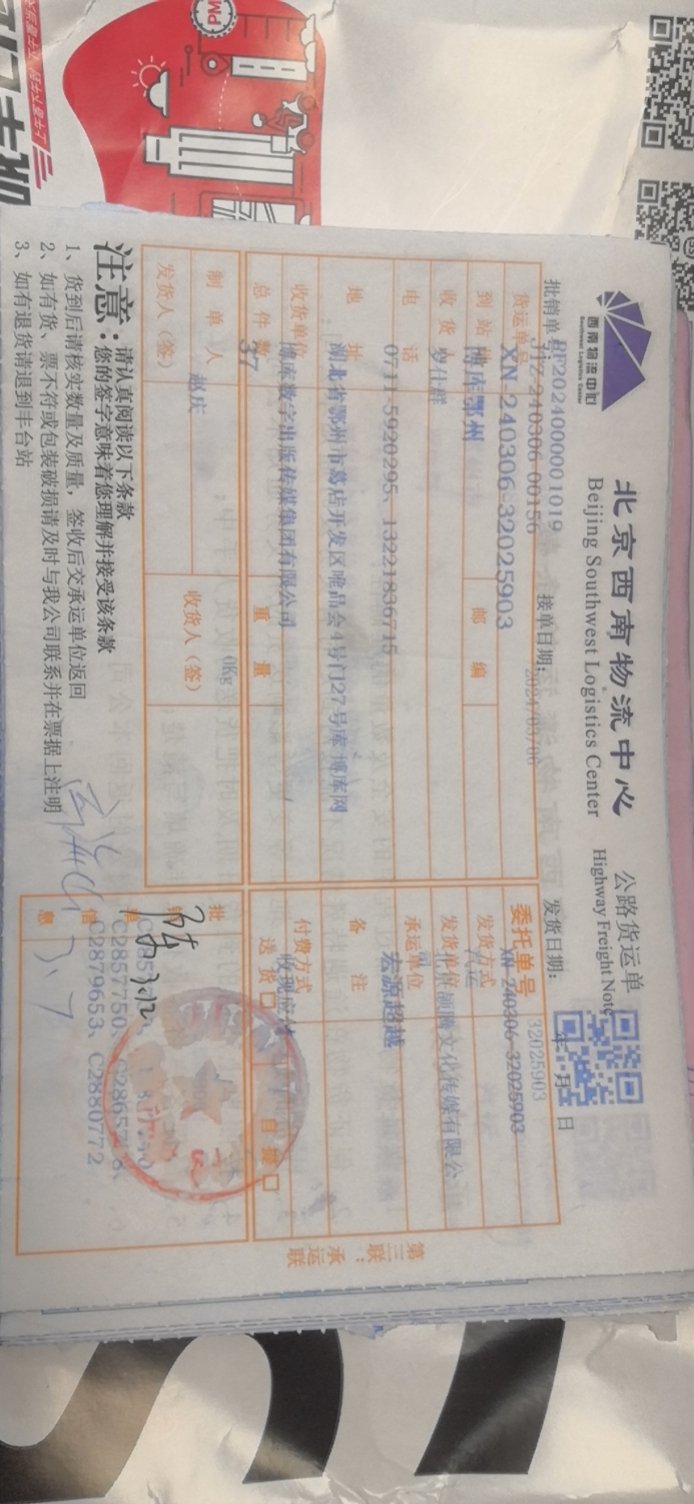 西南物流中心
Southwest Logistics Center
北京西南物流中心
Beijing Southwest Logistics Center
公路货运单
Highway Freight Note
批销单号
PF2024000001019
接单日期:
2024/03/06
发货日期:
年 月 日
32025903
JTZ-240306-00156
货运单号
XN-240306-32025903
委托单号
XN-240306-32025903
到站地
博库鄂州
邮编
发货方式
汽运
收货人
罗仕群
发货单位
文化传媒有限公
电话
0731-5920295、13221836715
承运单位
宏源超越
地址
湖北省鄂州市葛店开发区唯品会4号门27号库博库网
备注
收货单位
博库数字出版传媒集团有限公司
付费方式
收现应付
总件数
37
重量
0Kg
送货 □
自提 □
制单人
赵庆
发货人(签)
收货人(签)
批销单信息
C2857750、
C2879653、C2880772
3.7
第三联:承运联
注意:
请认真阅读以下条款
您的签字意味着您理解并接受该条款
1、货到后请核实数量及质量,签收后交承运单位返回
2、如有货、票不符或包装破损请及时与我公司联系并在票据上注明
3、如有退货请退到丰台站
PM